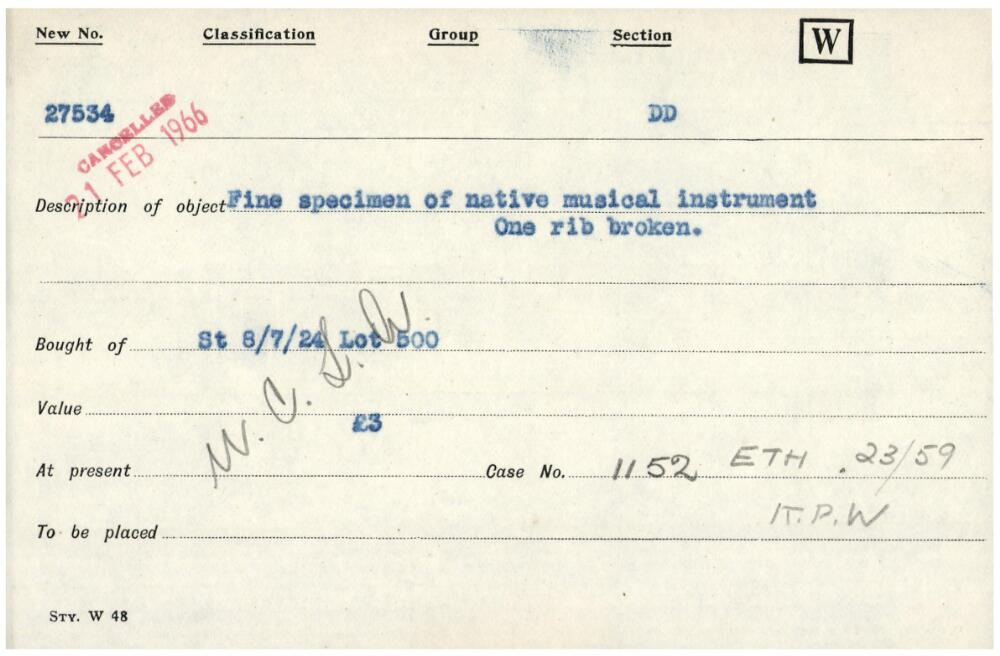 New No. Classification Group Section W
27534 DD
CANCELLED
21 FEB 1966
Description of object Fine specimen of native musical instrument
One rib broken.
Bought of St 8/7/24 Lot 500
Value £3
At present Case No. 1152 ETH . 23/59
To be placed
STY. W 48